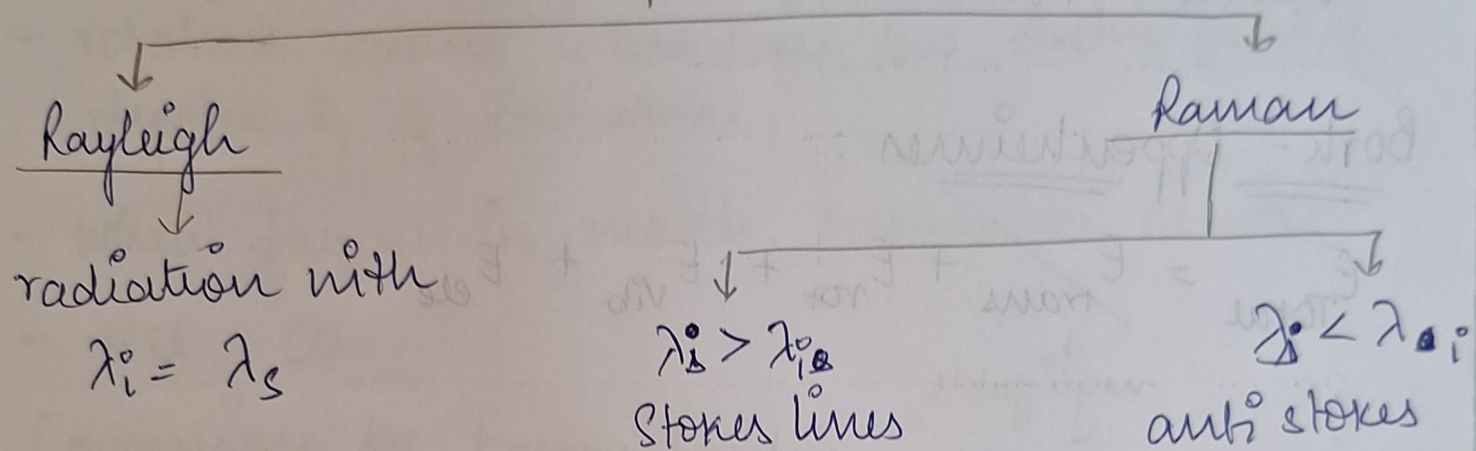 Rayleigh
Raman
radiation with
λi = λs
λs > λi
Stokes lines
λs < λi
anti stokes